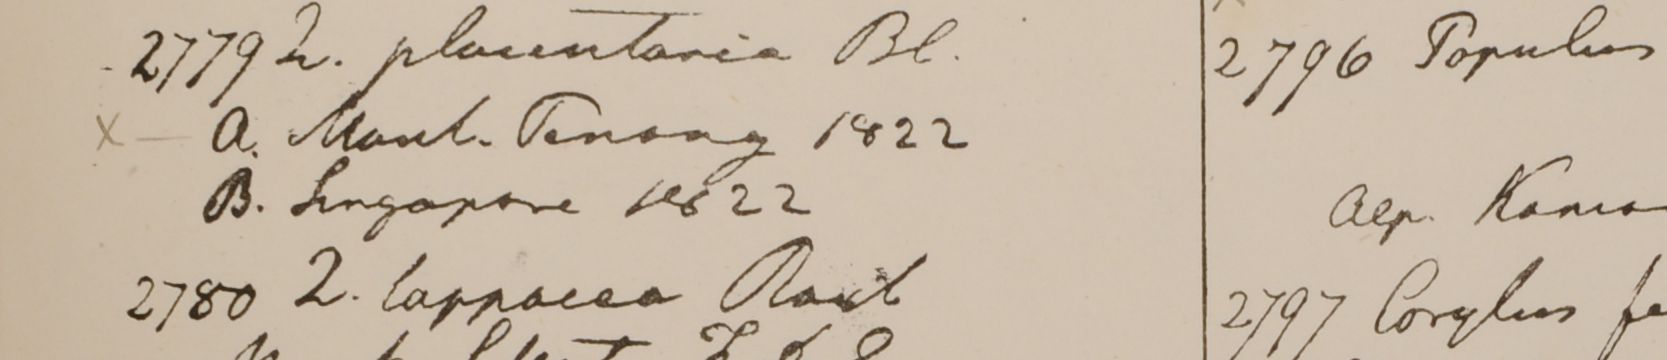 2779 Q. placentaria Bl.
A. Mont. Penang 1822
B. Singapore 1822
2780 Q. lappacea Roxb
2796 Populus
Alp. Kamao
2797 Corylus fe